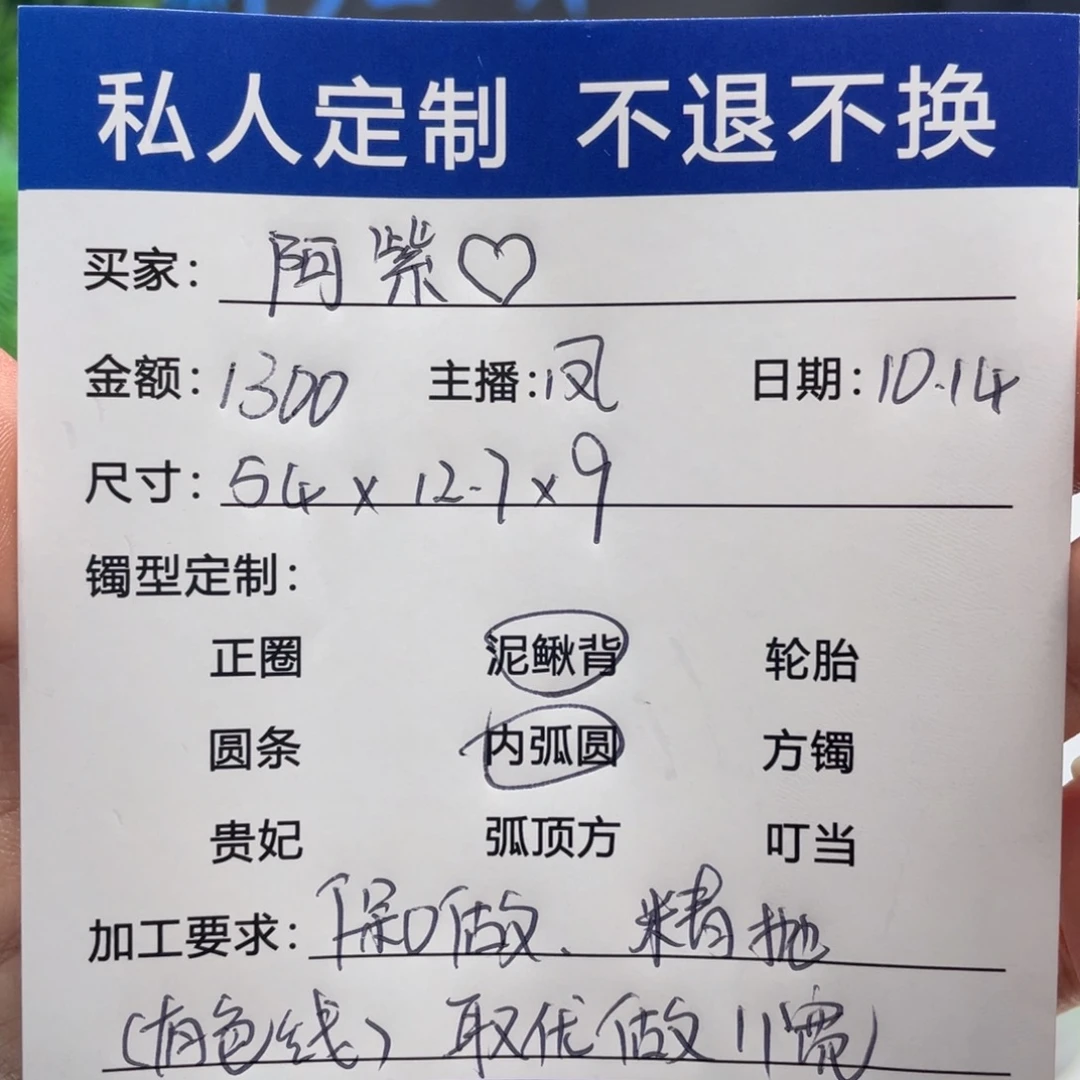 私人定制 不退不换
买家：阿紫♡
金额：1300 主播：凤 日期：10.14
尺寸：54×12.7×9
镯型定制：
正圈 泥鳅背 轮胎
圆条 内弧圆 方镯
贵妃 弧顶方 叮当
加工要求：保口做、精抛
(有色线) 取优做 11宽